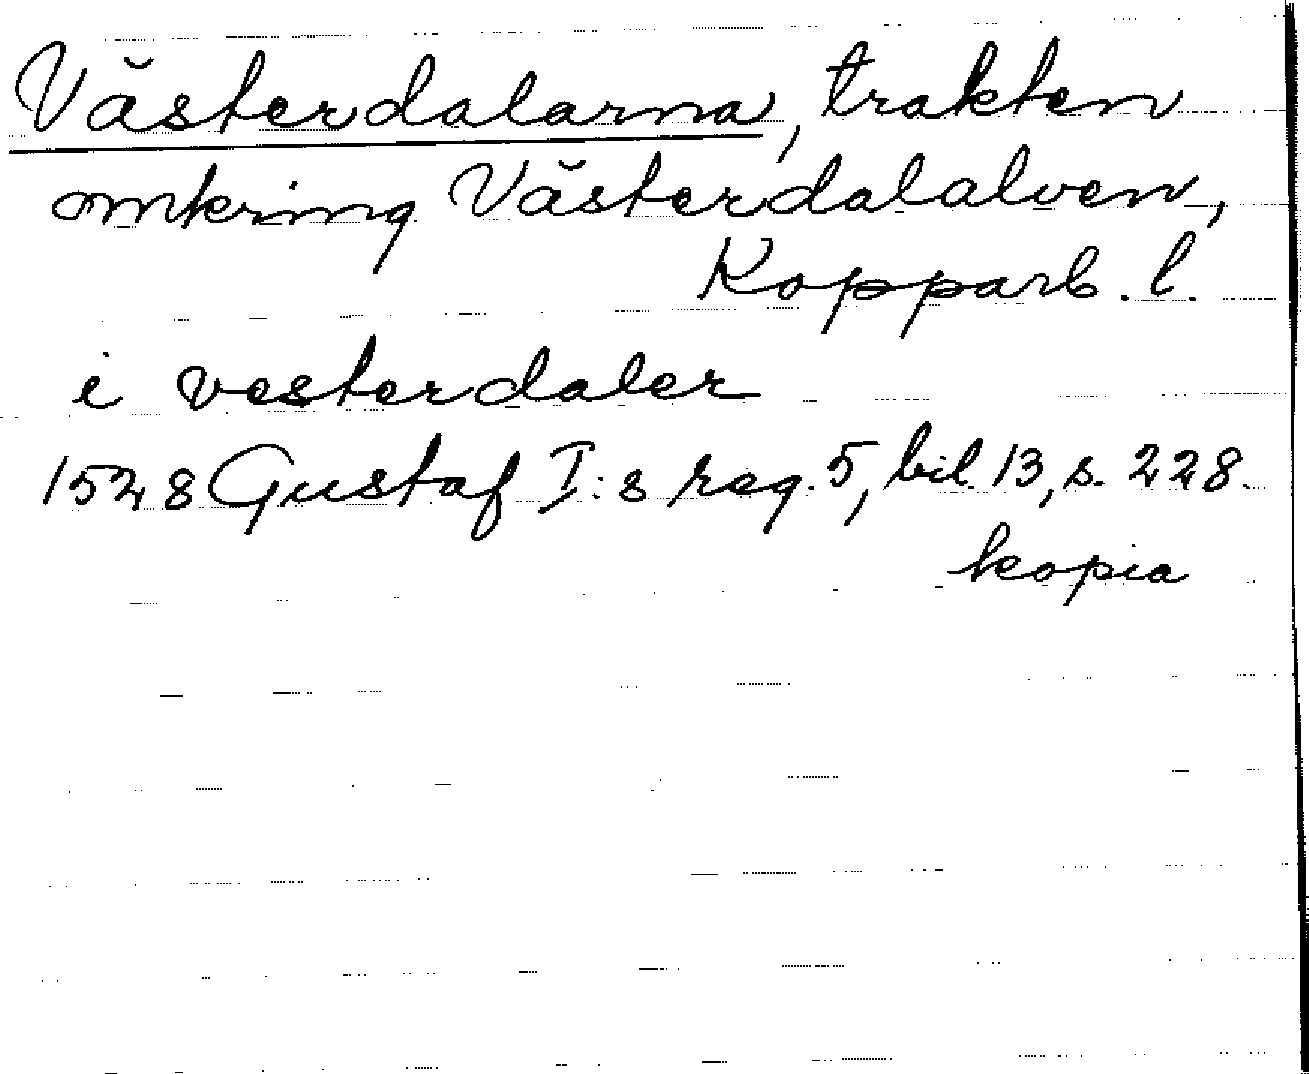 Västerdalarna, trakten
omkring Västerdalalven,
Kopparb. l.
i vesterdaler
1528 Gustaf I:s reg. 5, bil. 13, s. 228.
kopia